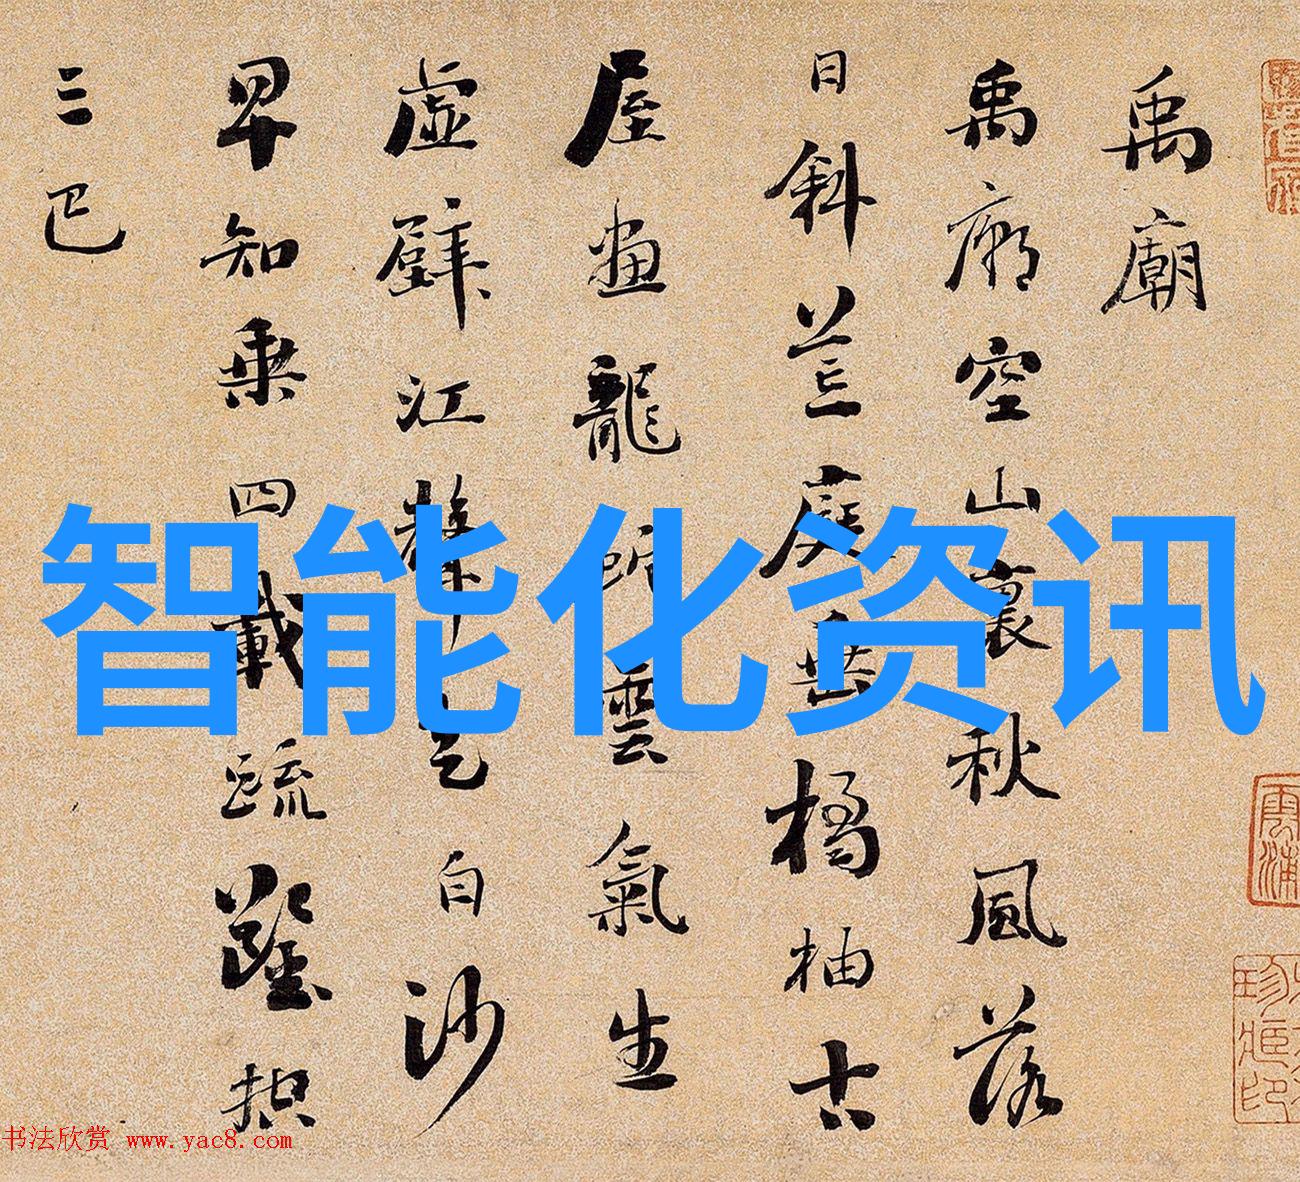 禹廟
禹廟空山裏秋風落
日斜荒庭垂橘柚古
屋畫龍蛇雲氣生
虛壁江聲走白沙
早知乘四載疏鑿控
三巴
智能化资讯
书法欣赏 www.yac8.com